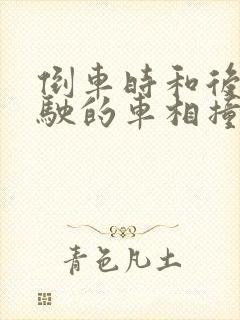 倒車時和後
駛的車相撞
青色凡土